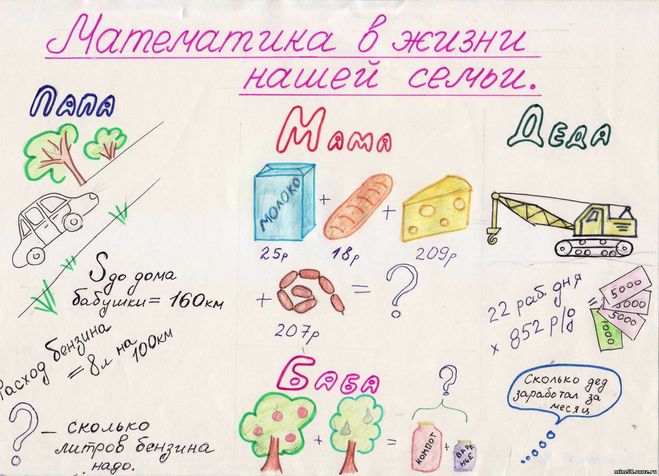 Математика в жизни
нашей семьи.
Папа
S до дома
бабушки = 160км
Расход бензина
= 8л на
100км
? – сколько
литров бензина
надо.
Мама
МОЛОКО
+
+
25р
18р
209р
+
= ?
207р
Баба
+
=
?
+
КОМПОТ
ВАРЕ
НЬЕ
Деда
22 раб дня
х 852 р/д
=
5000
5000
5000
1000
Сколько дед
заработал за
месяц